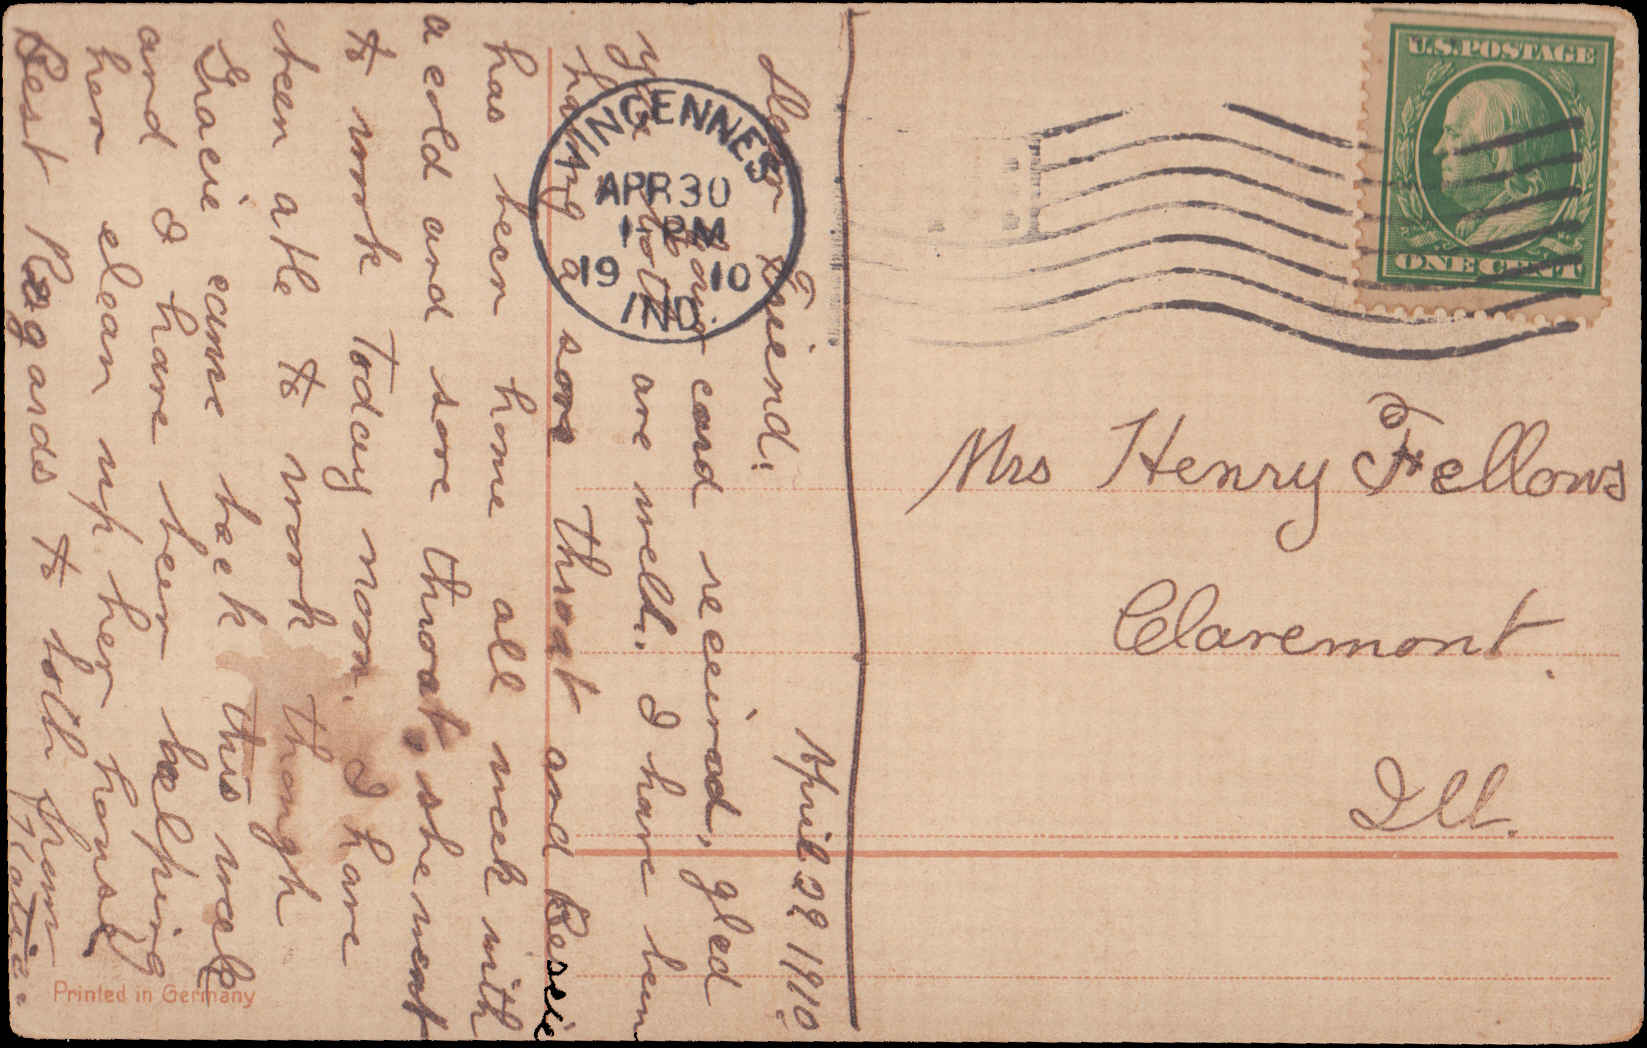 U.S. POSTAGE
ONE CENT
VINCENNES
APR 30
1 - PM
19 10
IND.
Mrs Henry Fellows
Claremont.
Ill.
April 29 1910.
Dear Friend.
Your card received, glad
you both are well. I have been
having a sore throat and Bessie
has been home all week with
a cold and sore throat, she went
to work today noon. I have
been able to work though
Gracie came back this week
and I have been helping
her clean up her house,
Best Regards to both from
Katie.
Printed in Germany